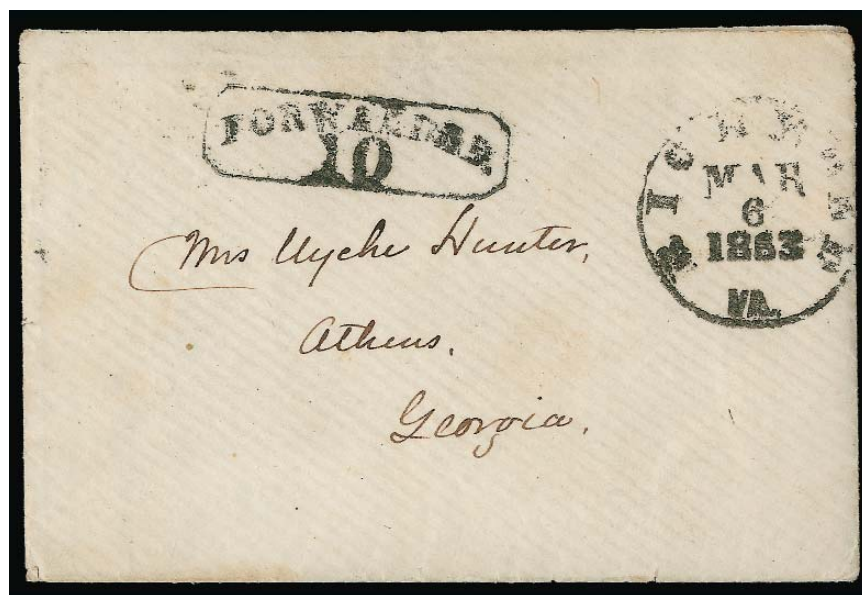 FORWARDED.
10
RICHMOND
MAR
6
1863
VA.
Mrs Wyche Hunter,
Athens.
Georgia.